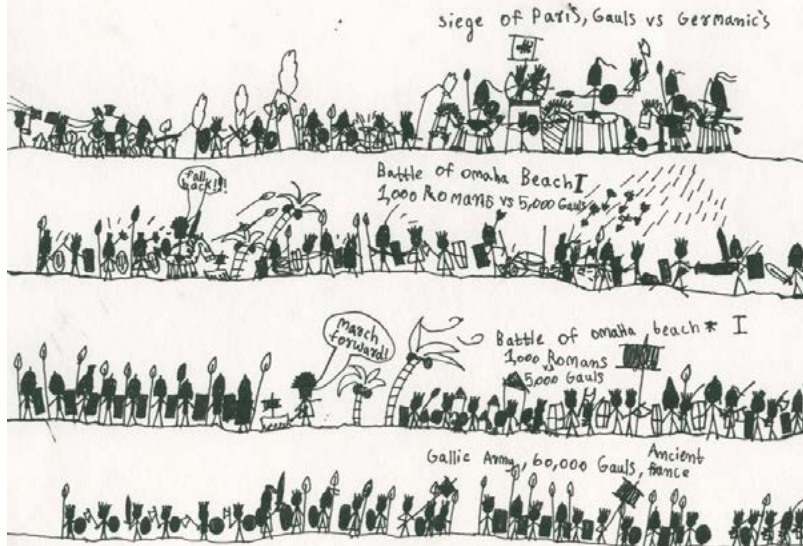 siege of Paris, Gauls vs Germanic's
Battle of omaha Beach I
1,000 Romans vs 5,000 Gauls
fall
back!!!
march
forward!
Battle of omaha beach * I
1,000 Romans
vs
5,000 Gauls
Gallic Army, 60,000 Gauls, Ancient
france